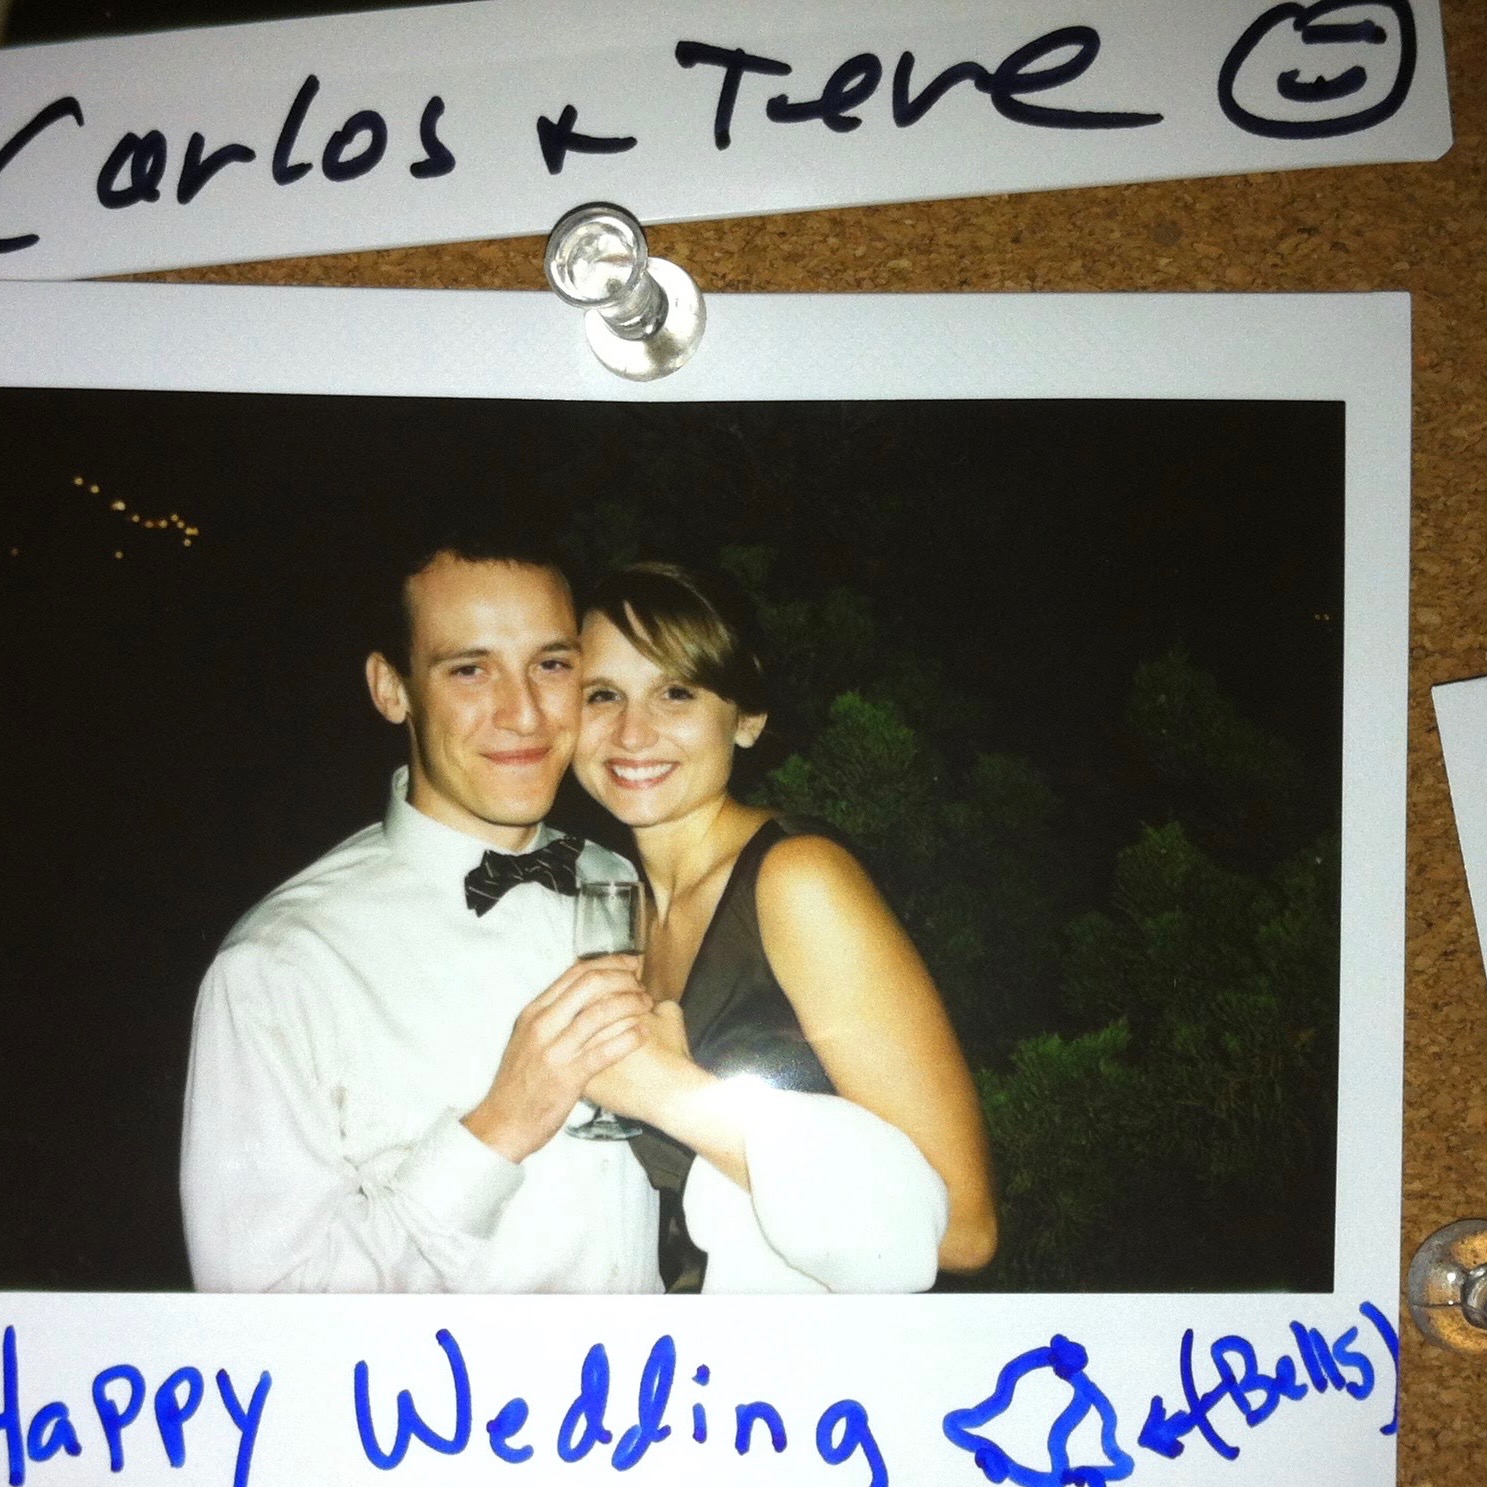 Carlos & Tere
Happy Wedding ←(Bells)